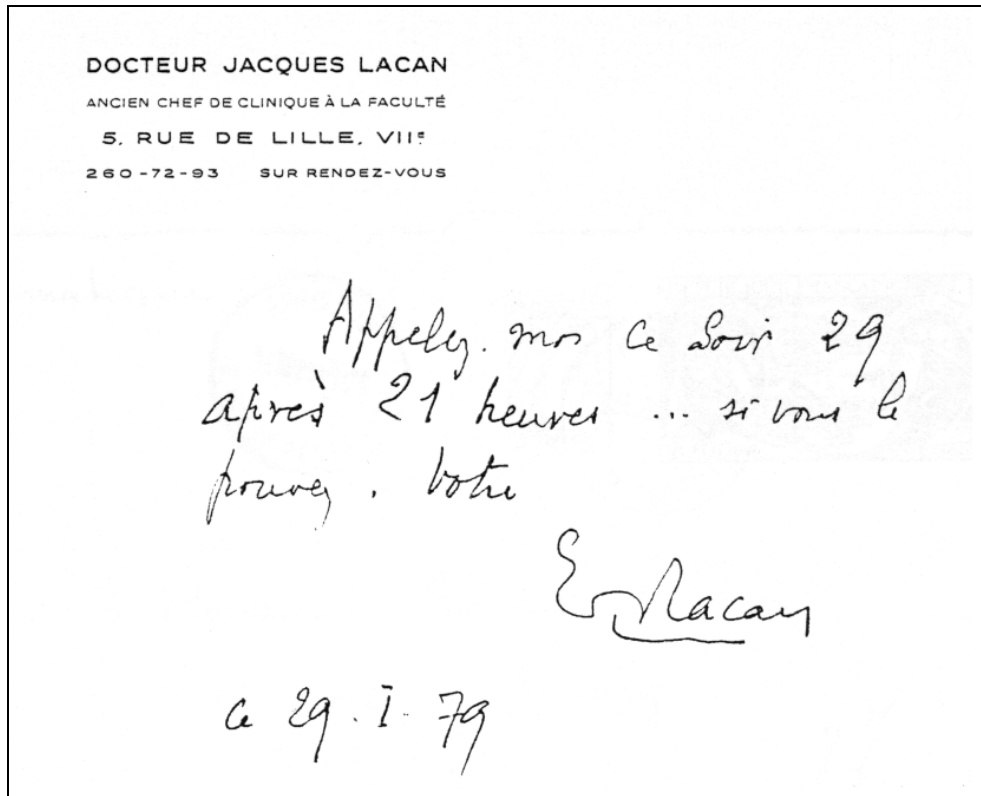 DOCTEUR JACQUES LACAN
ANCIEN CHEF DE CLINIQUE À LA FACULTÉ
5, RUE DE LILLE, VIIᵉ
260-72-93 SUR RENDEZ-VOUS
Appelez-moi ce soir 29
après 21 heures ... si vous le
pouvez. Votre
Lacan
ce 29. I. 79